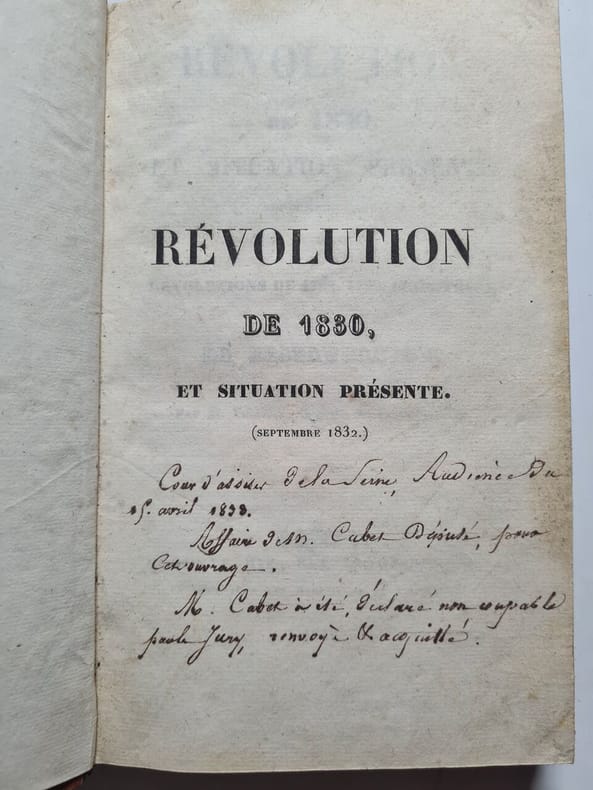 RÉVOLUTION
DE 1830,
ET SITUATION PRÉSENTE.
(SEPTEMBRE 1832.)
Cour d'assises de la Seine, Audience du
15. avril 1833.
Affaire de M. Cabet Député, pour
Cet ouvrage.
M. Cabet à été, déclaré non coupable
par le Jury, renvoyé & acquitté.